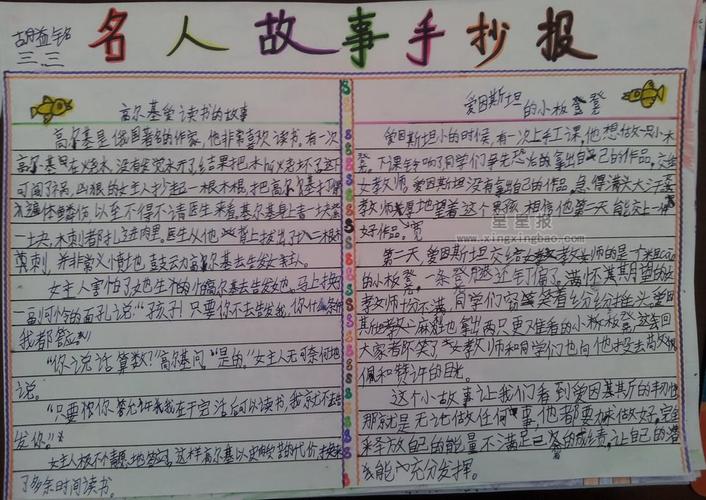 名人故事手抄报
三、三
高尔基爱读书的故事
高尔基是俄国著名的作家，他非常喜欢读书。有一次
高尔基在烧水，没有发觉水开了，结果把水壶烧坏了这下
可闯了祸，凶狠的女主人抄起一根木棍，把高尔基打
遍体鳞伤，以至不得不请医生来看。高尔基身上青一块紫
一块，木刺都扎进肉里。医生从他背上拔出了十几根木
刺，并非常义愤地鼓动高尔基去告发女主人。
女主人害怕了，她也生怕高尔基去告发她，马上换
一副可怜的面孔说：“孩子！只要你不去告发我，你什么条件
我都答应。”
“你说话算数？”高尔基问。“是的。”女主人无可奈何地
说。
“只要你答允许我在干完活后可以读书，我就不去告
发你。”
女主人极不愿意地答应了。这样高尔基以皮肉之苦的代价，换来
了多余时间读书。
爱因斯坦的小板凳
爱因斯坦小的时候，有一次上手工课，他想做一只小木
凳。下课铃响了同学们争先恐后的拿出自己的作品，交给
女教师。爱因斯坦没有拿出自己的作品，急得满头大汗。
教师宽厚地望着这个男孩，相信他第二天能交上一件
好作品。
星星报
www.xingxingbao.com
第二天，爱因斯坦交给女教师的是一个粗cāo
的小板凳，一条凳腿还钉偏了。满怀其期望的女
教师十分不满，同学们
大家都不笑了，女教师和同学们也向他投去
佩和赞许的目光。
这个小故事让我们看到爱因斯坦的
那就是无论做任何事，他都要力求做好，完全
释放自己的能量不满足已经的成绩，让自己的潜
能充分发挥。